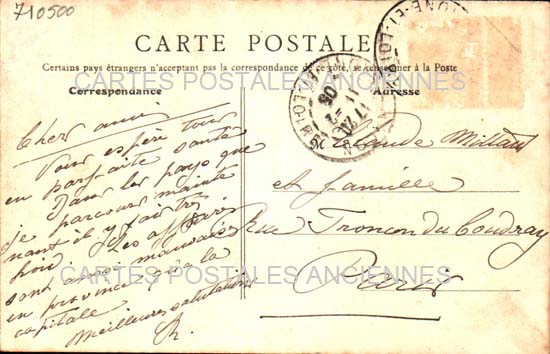 710500
CARTE POSTALE
Certains pays étrangers n'acceptant pas la correspondance de ce côté, se renseigner à la Poste
CARTES POSTALES ANCIENNES
Correspondance
Adresse
SAONE-ET-LOIRE
Cher ami
Vous espère tous
en parfaite santé
Dans les pays que
je parcours mainte
nant il y fait très
froid. Les affaires
sont aussi mauvaises
en province qu'à la
capitale
Meilleures salutations
Claude Millaud
et famille
Rue Tronson du Coudray
Paris
CARTES POSTALES ANCIENNES